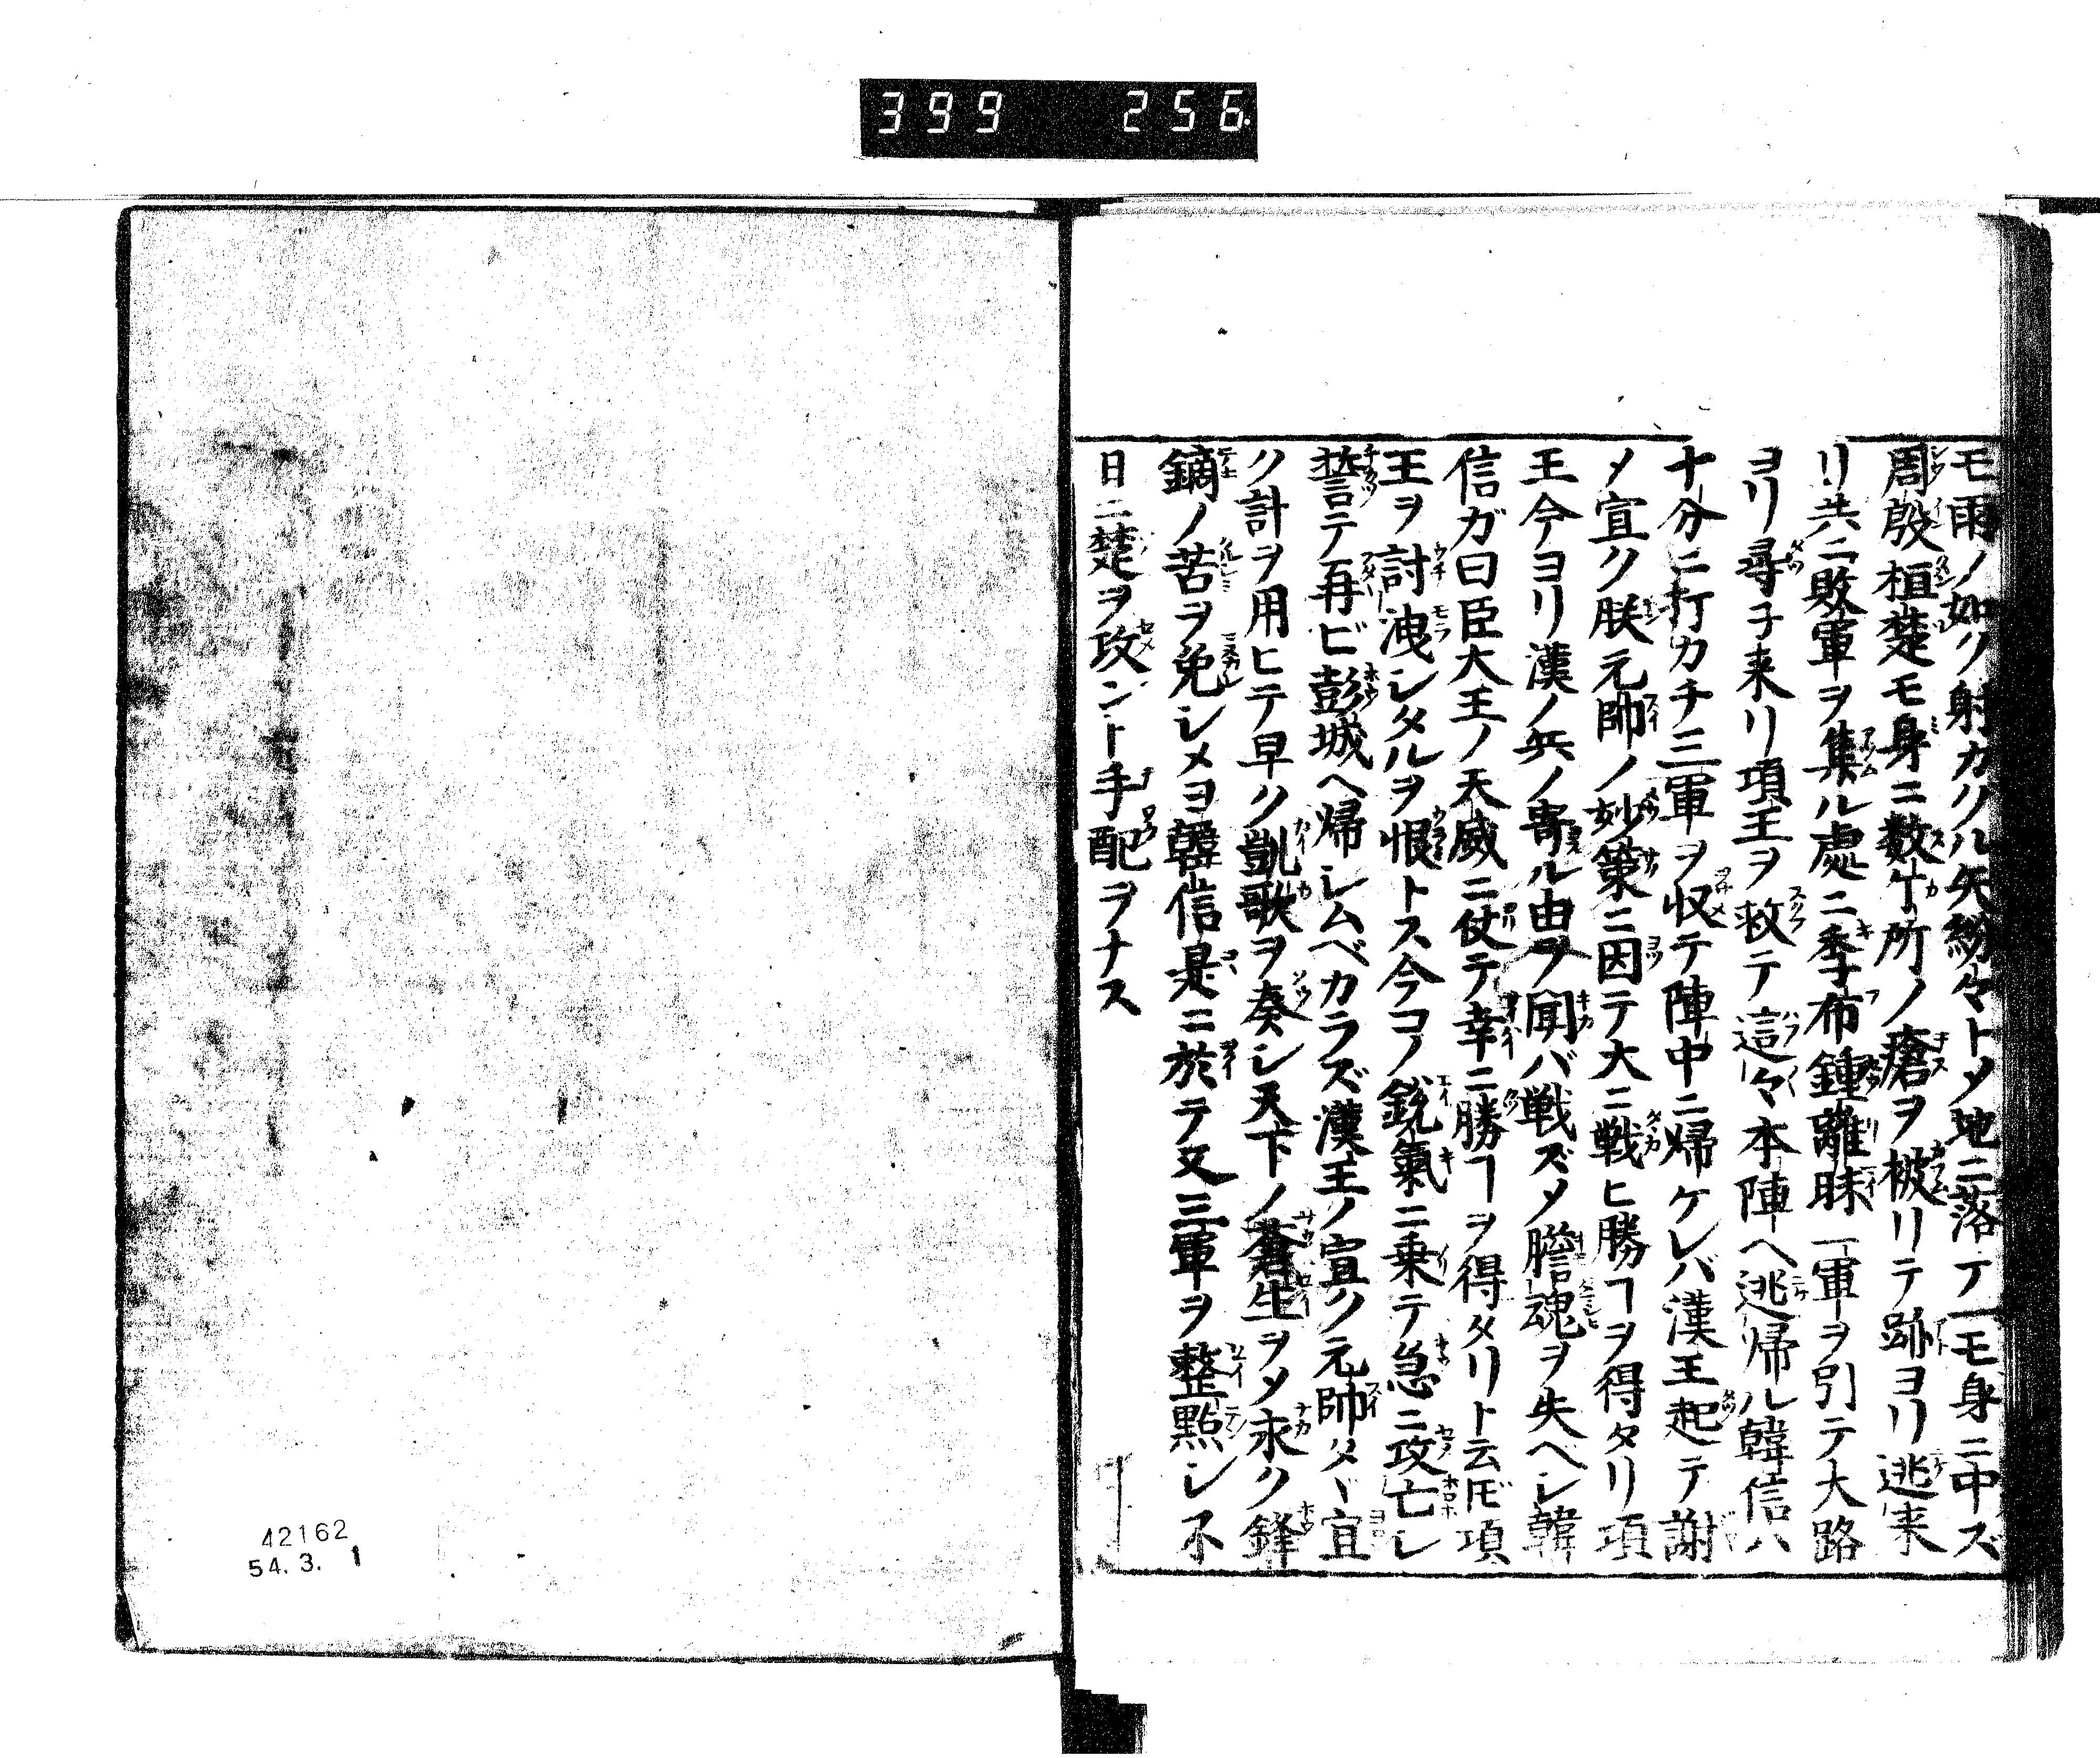 399 256
モ雨ノ如ク射カクル矢紛々トメ地ニ落テ一モ身ニ中ズ
周殷桓楚モ身ニ数ケ所ノ瘡ヲ被リテ跡ヨリ逃来
リ共ニ敗軍ヲ集ル處ニ季布鍾離昧一軍ヲ引テ大路
ヨリ尋子来リ項王ヲ救テ這々本陣ヘ逃帰ル韓信ハ
十分ニ打カチ三軍ヲ収テ陣中ニ帰ケレバ漢王起テ謝
メ宣ク朕元帥ノ妙策ニ因テ大ニ戦ヒ勝ヿヲ得タリ項
王今ヨリ漢ノ兵ノ寄ル由ヲ聞バ戦ズメ膽魂ヲ失ヘシ韓
信ガ曰臣大王ノ天威ニ仗テ幸ニ勝ヿヲ得タリト云𪜈項
王ヲ討洩シタルヲ恨トス今コノ鋭氣ニ乗テ急ニ攻亡シ
誓テ再ビ彭城ヘ帰シムベカラズ漢王ノ宣ク元帥タヾ宜
ク計ヲ用ヒテ早ク凱歌ヲ奏シ天下ノ蒼生ヲメ永ク鋒
鏑ノ苦ヲ免シメヨ韓信是ニ於テ又三軍ヲ整點シ不
日ニ楚ヲ攻ント手配ヲナス
42162
54.3. 1